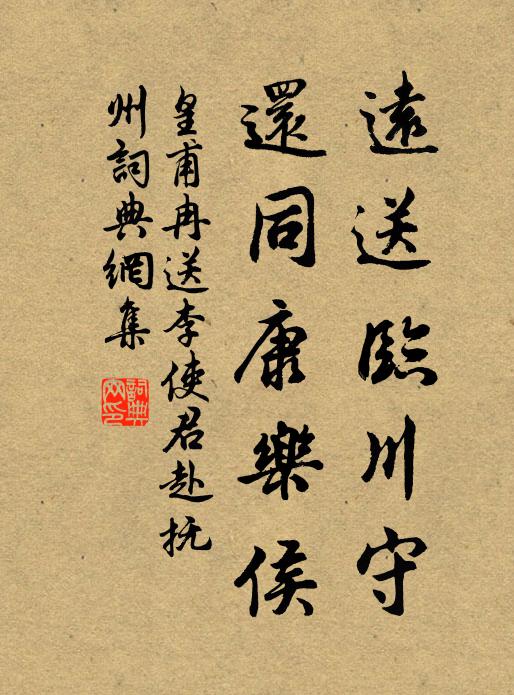 遠送臨川守
還同康樂侯
皇甫冉送李使君赴抚
州詞典網集
詞典網印